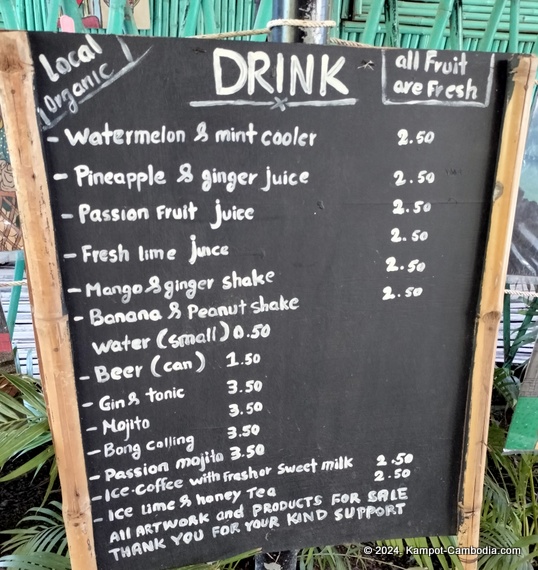 Local
Organic
DRINK
all Fruit
are Fresh
- Watermelon & mint cooler 2.50
- Pineapple & ginger juice 2.50
- Passion Fruit juice 2.50
- Fresh lime juice 2.50
- Mango & ginger shake 2.50
- Banana & Peanut shake 2.50
water (small) 0.50
- Beer (can) 1.50
- Gin & tonic 3.50
- Mojito 3.50
- Bong calling 3.50
- Passion mojito 3.50
- Ice-coffee with Fresh or sweet milk 2.50
- Ice lime & honey Tea 2.50
All ARTWORK and PRODUCTS FOR SALE
THANK YOU FOR YOUR KIND SUPPORT
© 2024, Kampot-Cambodia.com